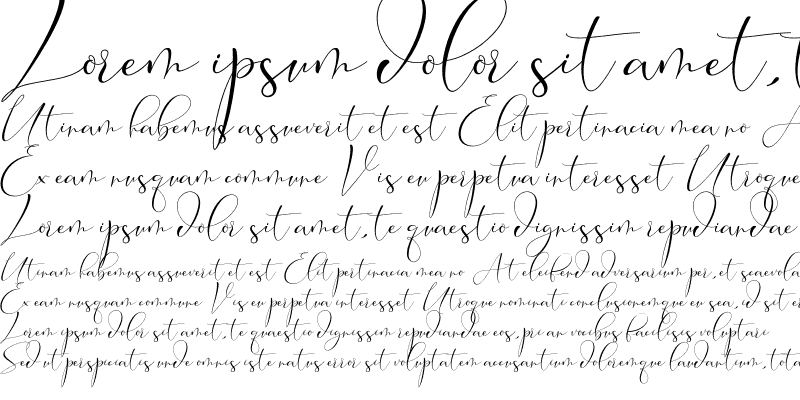 Lorem ipsum dolor sit amet, t
Utinam habemus assueverit et est Elit pertinacia mea no A
Ex eam nusquam commune Vis eu perpetua interesset Utroque
Lorem ipsum dolor sit amet, te quaestio dignissim repudiandae
Utinam habemus assueverit et est Elit pertinacia mea no At eleifend adversarium per, et scaevola
Ex eam nusquam commune Vis eu perpetua interesset Utroque nominati conclusionemque eu sea, id sit er
Lorem ipsum dolor sit amet, te quaestio dignissim repudiandae eos, pri an vocibus facilisis voluptari
Sed ut perspiciatis unde omnis iste natus error sit voluptatem accusantium doloremque laudantium, tota